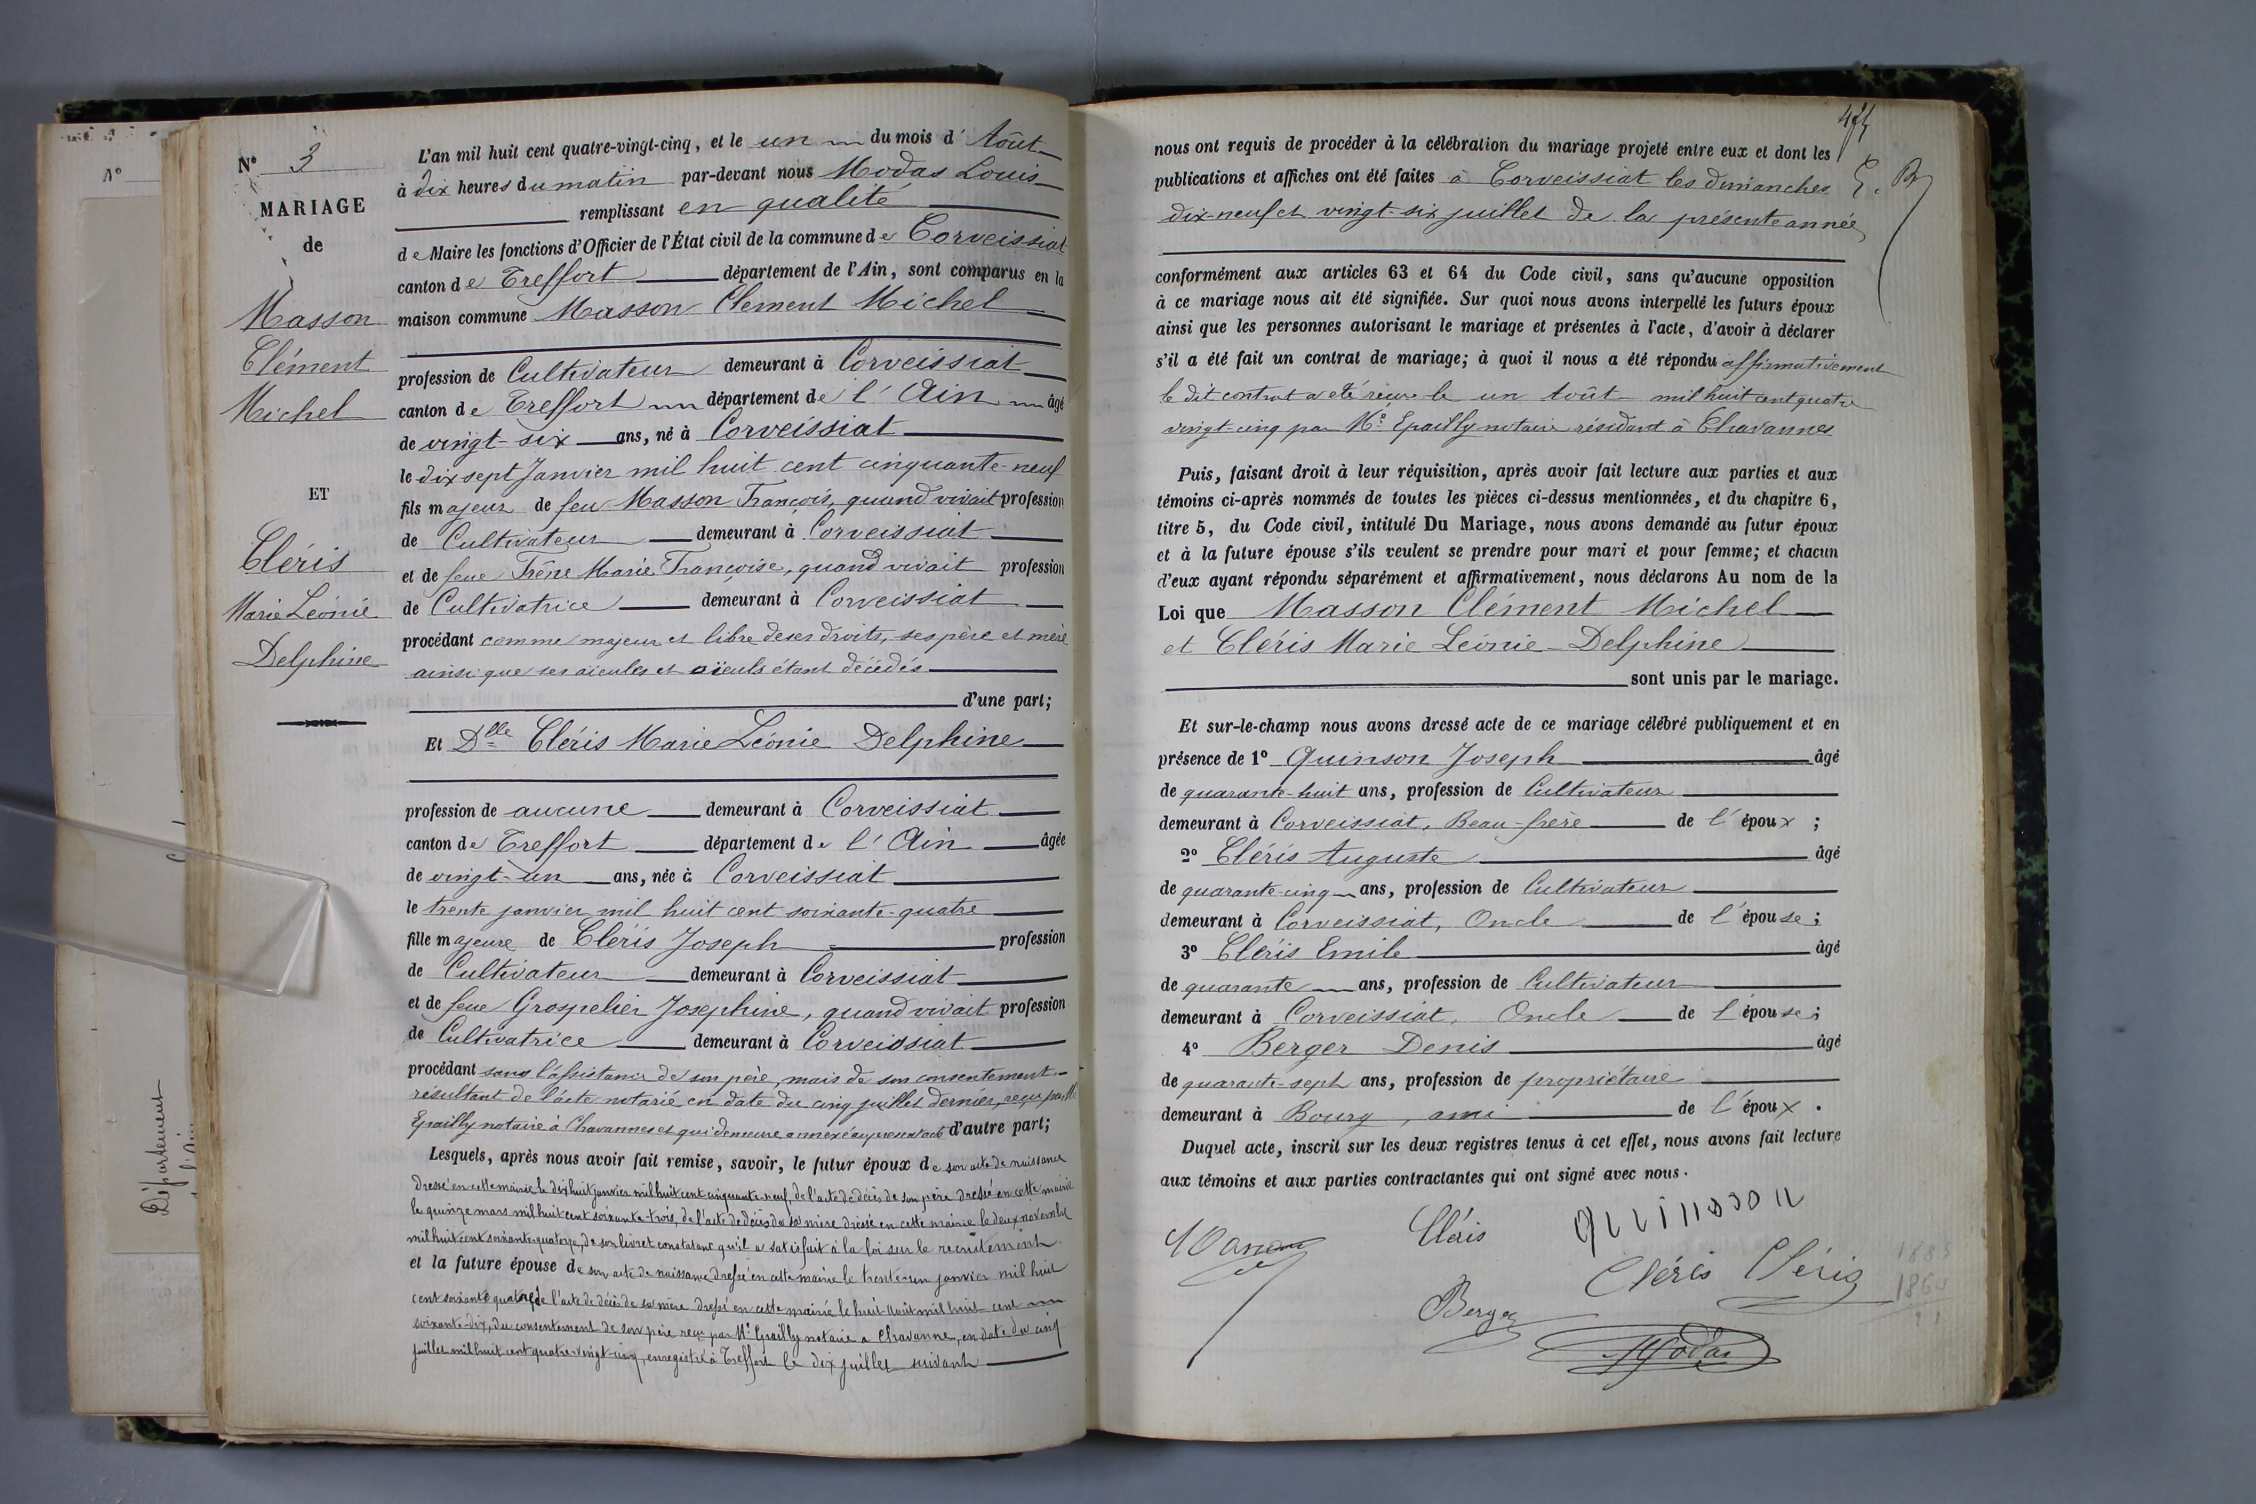 N° 3
MARIAGE
de
Masson
Clément
Michel
ET
Cléris
Marie Léonie
Delphine
L'an mil huit cent quatre-vingt-cinq, et le un du mois d' Août
à dix heures du matin par-devant nous Modas Louis
remplissant en qualité
de Maire les fonctions d'Officier de l'État civil de la commune de Corveissiat
canton de Treffort département de l'Ain, sont comparus en la
maison commune Masson Clément Michel
profession de Cultivateur demeurant à Corveissiat
canton de Treffort département de l'Ain âgé
de vingt-six ans, né à Corveissiat
le dix sept Janvier mil huit cent cinquante-neuf
fils majeur de feu Masson François, quand vivait profession
de Cultivateur demeurant à Corveissiat
et de feue Frêne Marie Françoise, quand vivait profession
de Cultivatrice demeurant à Corveissiat
procédant comme majeur et libre de ses droits, ses père et mère
ainsi que ses aïeules et aïeuls étant décédés
d'une part;
Et Dlle Cléris Marie Léonie Delphine
profession de aucune demeurant à Corveissiat
canton de Treffort département de l'Ain âgée
de vingt-un ans, née à Corveissiat
le trente janvier mil huit cent soixante-quatre
fille majeure de Cléris Joseph profession
de Cultivateur demeurant à Corveissiat
et de feue Grospelier Josephine, quand vivait profession
de Cultivatrice demeurant à Corveissiat
procédant sans l'assistance de son père, mais de son consentement
résultant de l'acte notarié en date du cinq juillet dernier, reçu par Me
Epailly notaire à Chavannes et qui demeure annexé au présent acte d'autre part;
Lesquels, après nous avoir fait remise, savoir, le futur époux de son acte de naissance
dressé en cette mairie le dix huit janvier mil huit cent cinquante-neuf, de l'acte de décès de son père dressé en cette mairie
le quinze mars mil huit cent soixante-trois, de l'acte de décès de sa mère dressé en cette mairie le deux novembre
mil huit cent soixante-quatorze, de son livret constatant qu'il a satisfait à la loi sur le recrutement
et la future épouse de son acte de naissance dressé en cette mairie le trente-un janvier mil huit
cent soixante quatre, de l'acte de décès de sa mère dressé en cette mairie le huit Août mil huit cent
soixante-dix, du consentement de son père reçu par Me Epailly notaire a Chavanne, en date du cinq
juillet mil huit cent quatre-vingt-cinq, enregistré à Treffort le dix juillet suivant
Département
nous ont requis de procéder à la célébration du mariage projeté entre eux et dont les
publications et affiches ont été faites à Corveissiat les dimanches
dix-neuf et vingt-six juillet de la présente année
conformément aux articles 63 et 64 du Code civil, sans qu'aucune opposition
à ce mariage nous ait été signifiée. Sur quoi nous avons interpellé les futurs époux
ainsi que les personnes autorisant le mariage et présentes à l'acte, d'avoir à déclarer
s'il a été fait un contrat de mariage; à quoi il nous a été répondu affirmativement
le dit contrat a été reçu le un Août mil huit cent quatre
vingt-cinq par Me Epailly notaire résidant à Chavannes
Puis, faisant droit à leur réquisition, après avoir fait lecture aux parties et aux
témoins ci-après nommés de toutes les pièces ci-dessus mentionnées, et du chapitre 6,
titre 5, du Code civil, intitulé Du Mariage, nous avons demandé au futur époux
et à la future épouse s'ils veulent se prendre pour mari et pour femme; et chacun
d'eux ayant répondu séparément et affirmativement, nous déclarons Au nom de la
Loi que Masson Clément Michel
et Cléris Marie Léonie-Delphine
sont unis par le mariage.
Et sur-le-champ nous avons dressé acte de ce mariage célébré publiquement et en
présence de 1° Quinson Joseph âgé
de quarante-huit ans, profession de Cultivateur
demeurant à Corveissiat, Beau-frère de l'époux ;
2° Cléris Auguste âgé
de quarante-cinq ans, profession de Cultivateur
demeurant à Corveissiat, Oncle de l'épouse ;
3° Cléris Emile âgé
de quarante ans, profession de Cultivateur
demeurant à Corveissiat, Oncle de l'épouse ;
4° Berger Denis âgé
de quarante-sept ans, profession de propriétaire
demeurant à Bourg, ami de l'époux .
Duquel acte, inscrit sur les deux registres tenus à cet effet, nous avons fait lecture
aux témoins et aux parties contractantes qui ont signé avec nous.
Masson Cléris quinsson
Cléris Cléris
Berger
Modas
1885
1864
21